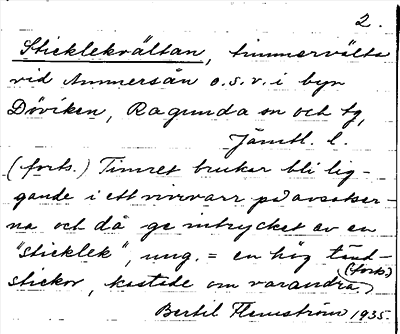 2.
Sticklekvältan, timmervälta
vid Ammersån o.s.v. i byn
Döviken, Ragunda sn och tg,
Jämtl. l.
(forts.) Timret brukar bli lig-
gande i ett virrvarr på avsatser-
na och då ge intrycket av en
"sticklek", ung. = en hög tänd-
stickor, kastade om varandra
(forts.)
Bertil Flemström 1935.